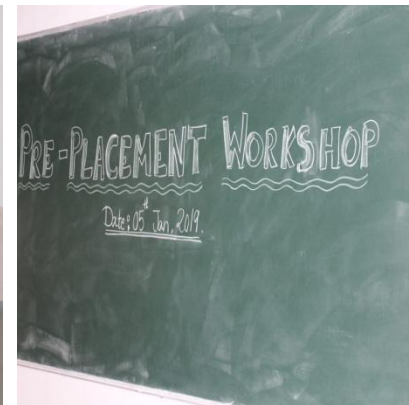 PRE-PLACEMENT WORKSHOP
Date: 05th Jan, 2019.